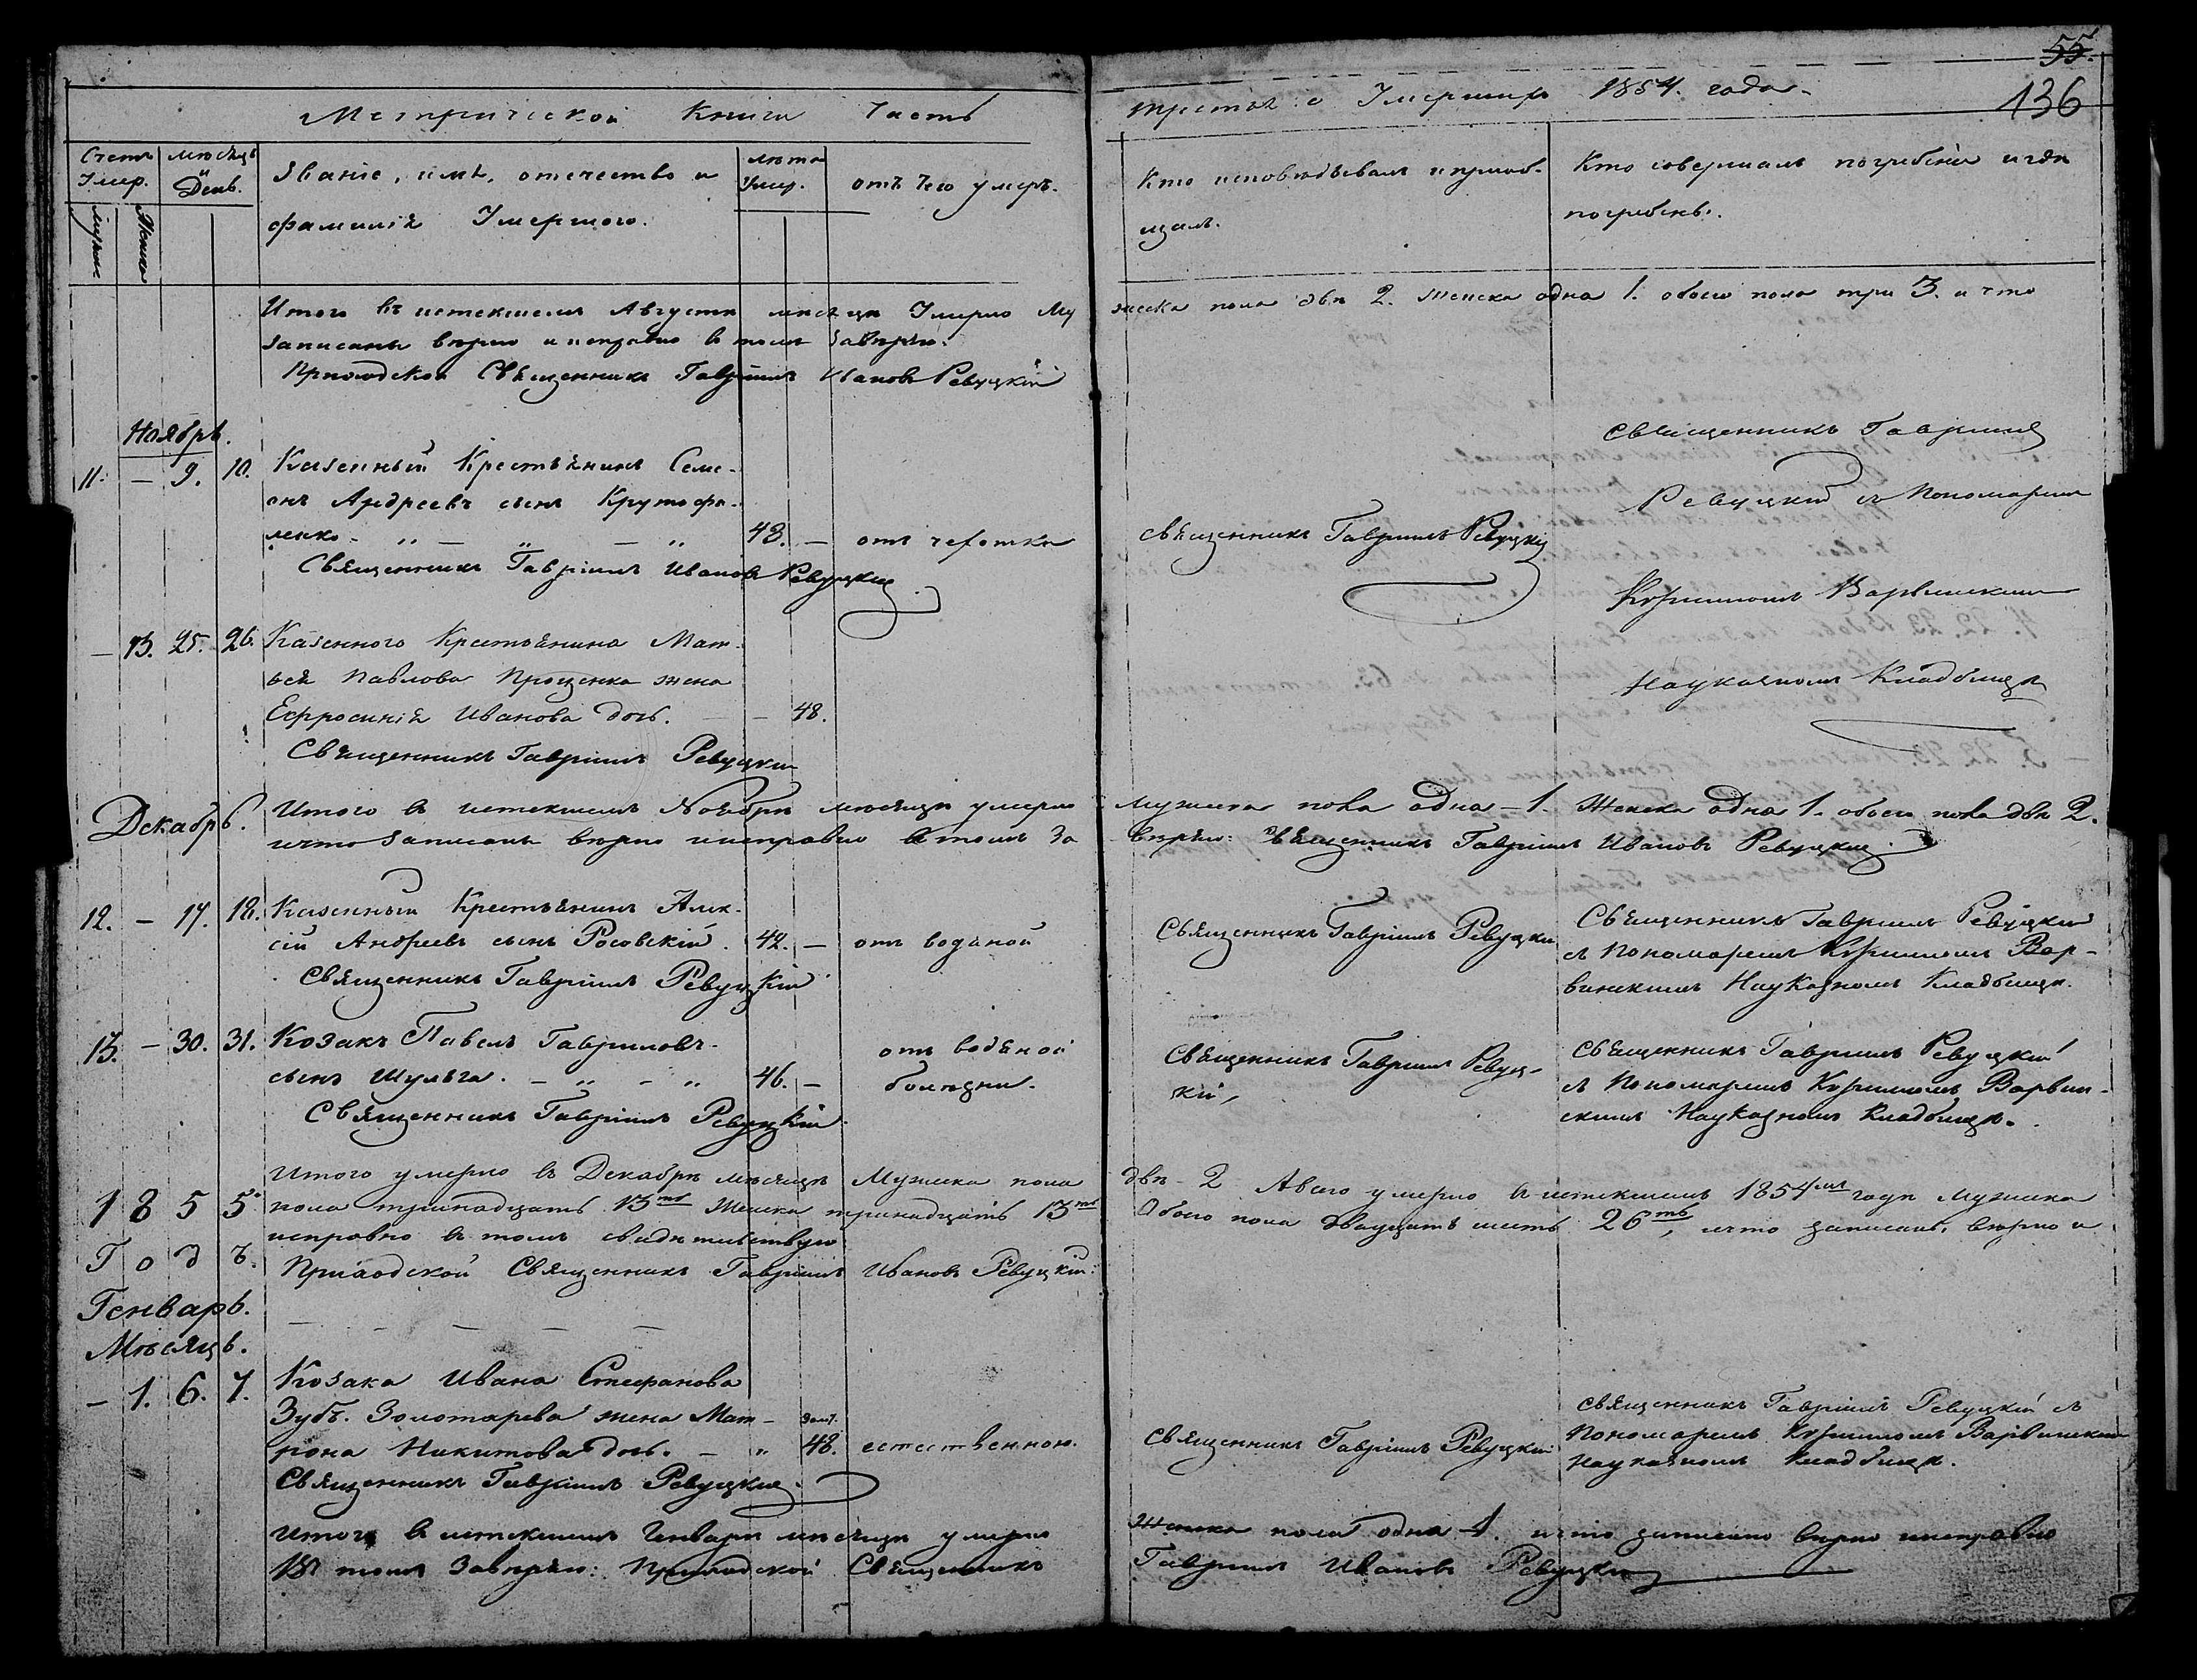 55.
136
Метрической Книги Часть
третья о Умершихъ 1854. года.
Счетъ Умер.
мѣсяцъ и День.
Званіе, имя, отечество и
фамилія Умершого.
лѣта Умер.
отъ чего умеръ.
Кто исповѣдывалъ и приоб-
щалъ.
Кто совершалъ погребеніе и гдѣ
погребенъ.
Мужеск
Женска
Итого въ истекшемъ Августѣ мѣсяцѣ Умерло Му
жеска пола двѣ 2. Женска одна 1. обоего пола три 3. и что
записаны вѣрно и исправно в томъ завѣряю.
Приходской Священникъ Гавріилъ Ивановъ Ревуцкій
Ноябрь.
11. — 9. 10. Казенный Крестьянинъ Семе-
онъ Андреевъ сынъ Крутофа-
ленко - „ — „ — „ 48. — отъ чехотки
Священникъ Гавріилъ Ивановъ Ревуцкій
Священникъ Гавріилъ Ревуцкій
Священникъ Гавріилъ
Ревуцкій съ Пономаремъ
Варвинскимъ
На Кладбищѣ
— 13. 25. 26. Казенного Крестьянина Мат-
вея Павлова Прощенка жена
Ефросинія Иванова дочь. — — 48.
Священникъ Гавріилъ Ревуцкій
Декабрь.
Итого в истекшемъ Ноябрѣ мѣсяцѣ умерло
мужеска пола одна — 1. Женска одна 1. обоего пола двѣ 2.
и что записаны вѣрно и исправно в томъ за
вѣряю: Священникъ Гавріилъ Ивановъ Ревуцкій.
12. — 17. 18. Казенный Крестьянинъ Алек-
сій Андреевъ сынъ Росовскій. 42. — отъ водяной
Священникъ Гавріилъ Ревуцкій
Священникъ Гавріилъ Ревуцкій
Священникъ Гавріилъ Ревуцкій
съ Пономаремъ Вар-
винскимъ На Кладбищѣ.
13. — 30. 31. Козакъ Павелъ Гавриловъ
сынъ Шульга. — „ - „ 46. — отъ водяной
болѣзни.
Священникъ Гавріилъ Ревуцкій
Священникъ Гавріилъ Ревуц-
кій,
Священникъ Гавріилъ Ревуцкій
съ Пономаремъ Варвин-
скимъ На Кладбищѣ.
Итого умерло въ Декабрѣ мѣсяцѣ Мужска пола
двѣ - 2 А всего умерло в истекшемъ 1854мъ годѣ Мужска
1855
Годъ.
пола тринадцать 13ть Женска тринадцать 13ть
Обоего пола двадцать шесть 26ть, и что записаны вѣрно и
исправно в томъ свидѣтельствую
Приходской Священникъ Гавріилъ Ивановъ Ревуцкій.
Генварь.
Мѣсяцъ.
— 1. 6. 7. Козака Ивана Стефанова
Зубъ. Золотарева жена Мат-
рона Никитова дочь. — „ 48. естественною.
Священникъ Гавріилъ Ревуцкій.
Священникъ Гавріилъ Ревуцкій
Священникъ Гавріилъ Ревуцкій съ
Пономаремъ Варвинскимъ
На Кладбищѣ.
Итого в истекшемъ Генварѣ мѣсяцѣ умерло
Женска пола одна 1. и что записано вѣрно и исправно
В томъ Завѣряю: Приходской Священникъ
Гавріилъ Ивановъ Ревуцкій